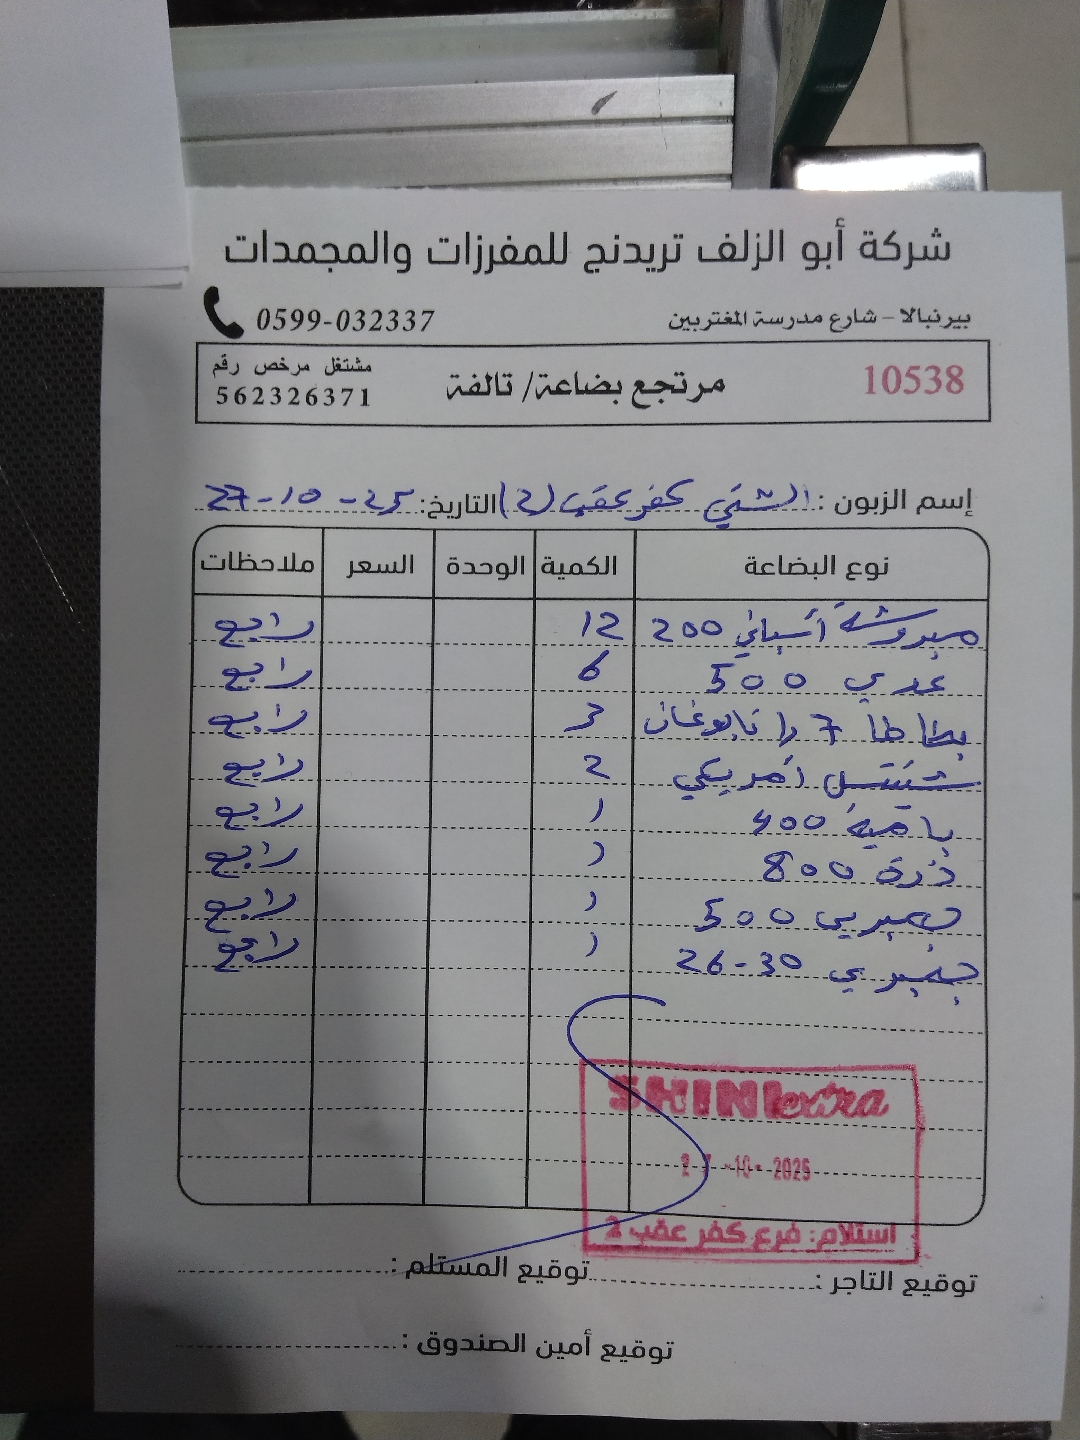 شركة أبو الزلف تريدنج للمفرزات والمجمدات
بيرنبالا – شارع مدرسة المغتربين 0599-032337
10538 مرتجع بضاعة/ تالفة مشتغل مرخص رقم
562326371
إسم الزبون : الشني كفر عقب (2) التاريخ: 27-10-25
نوع البضاعة الكمية الوحدة السعر ملاحظات
مبروشة أسباني 200 12 راجع
عدي 500 6 راجع
بطاطا 7 3 راجع
شنيتسل أمريكي 2 راجع
بامية 400 1 راجع
ذرة 800 1 راجع
جمبري 500 1 راجع
جمبري 26-30 1 راجع
SHINI extra
27-10-2025
استلام: فرع كفر عقب 2
توقيع التاجر : توقيع المستلم :
توقيع أمين الصندوق :